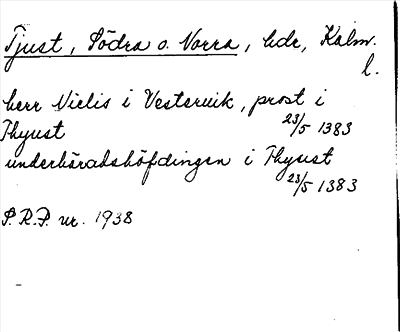 Tjust, Södra o. Norra, hdr, Kalm.
l.
herr Nielis i Vestervik, prost i
Thyust 23/5 1383
underhäradshöfdingen i Thyust
23/5 1383
S.R.P. nr. 1938